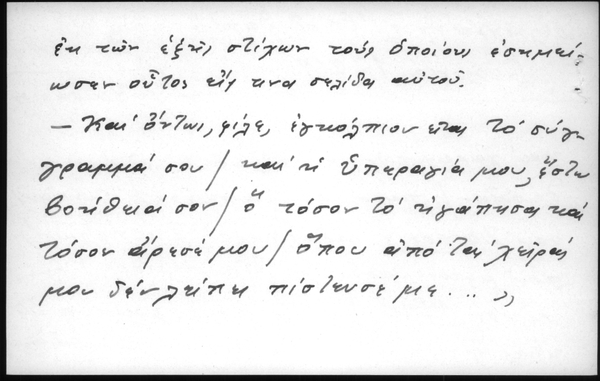 ἐκ τῶν ἑξῆς στίχων τοὺς ὁποίους ἐσημεί-
ωσεν οὗτος εἴς τινα σελίδα αὐτοῦ.
— Καὶ ὄντως, φίλε, ἐγκόλπιον εἶναι τὸ σύγ-
γραμμά σου / καὶ ἡ Ὑπεραγία μου, ἔστω
βοήθειά σου / ὅ τόσον τὸ ἠγάπησα καὶ
τόσον ἄρεσέ μου / ὅπου ἀπὸ τὰς χεῖράς
μου δὲν λείπει πίστευσέ με... »